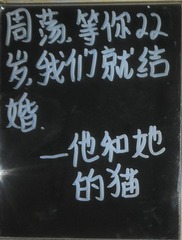 周荡,等你22
岁,我们就结
婚.
—他和她
的猫